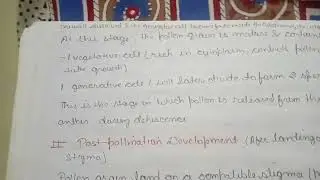 At this stage, the pollen grain is mature & contains
→ 1 vegetative cell (rich in cytoplasm, controls pollen
tube growth)
1 generative cell (will later divide to form 2 sperm
This is the stage in which pollen is released from the
anther during dehiscence
II Post-pollination Development (After landing on
Stigma)
Pollen grain land on a compatible stigma